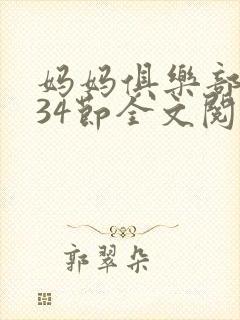 妈妈俱樂部
34節全文閱
郭翠朵